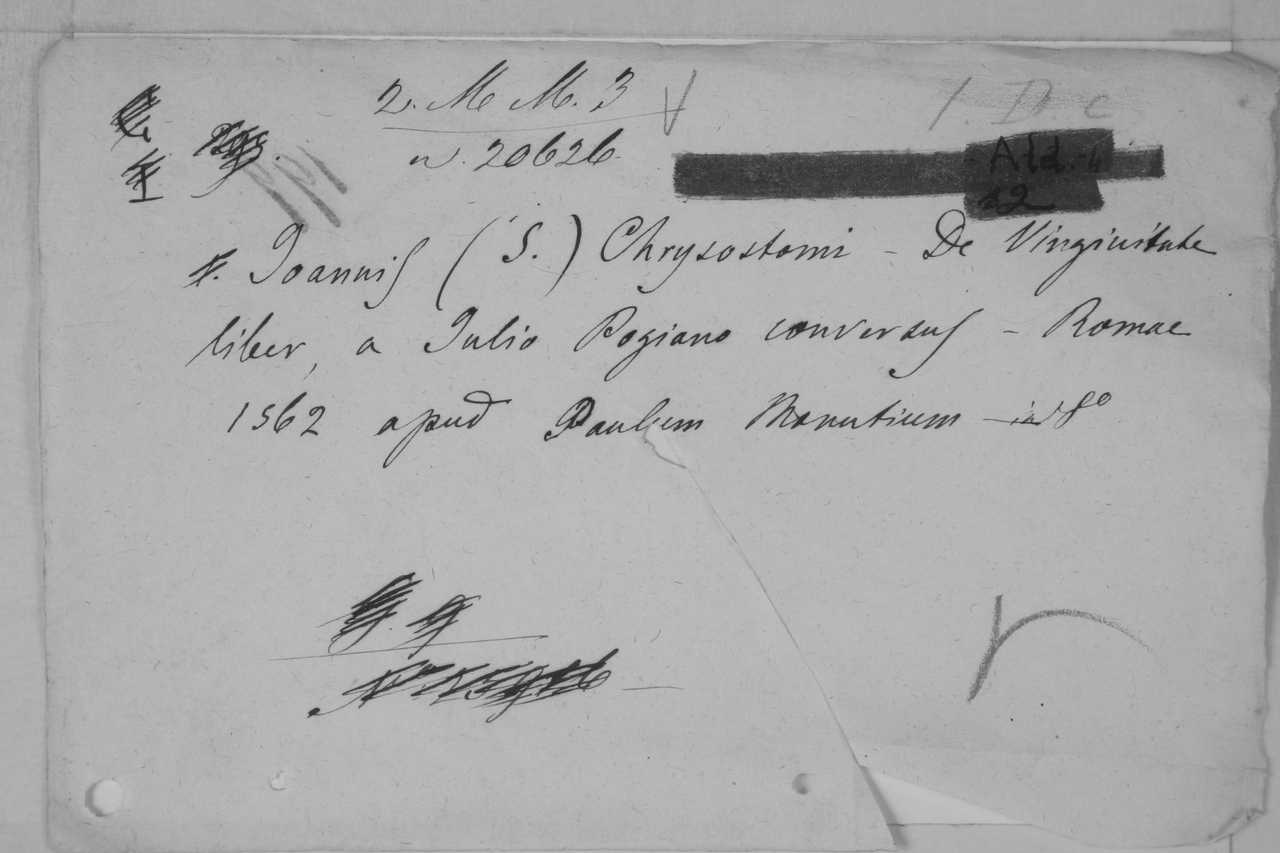 2. M M. 3
1. D. c
n. 20626
Ald.
22
Joannis (S.) Chrysostomi - De Virginitate
liber, a Julio Pogiano conversus - Romae
1562 apud Paulum Manutium - in 8º